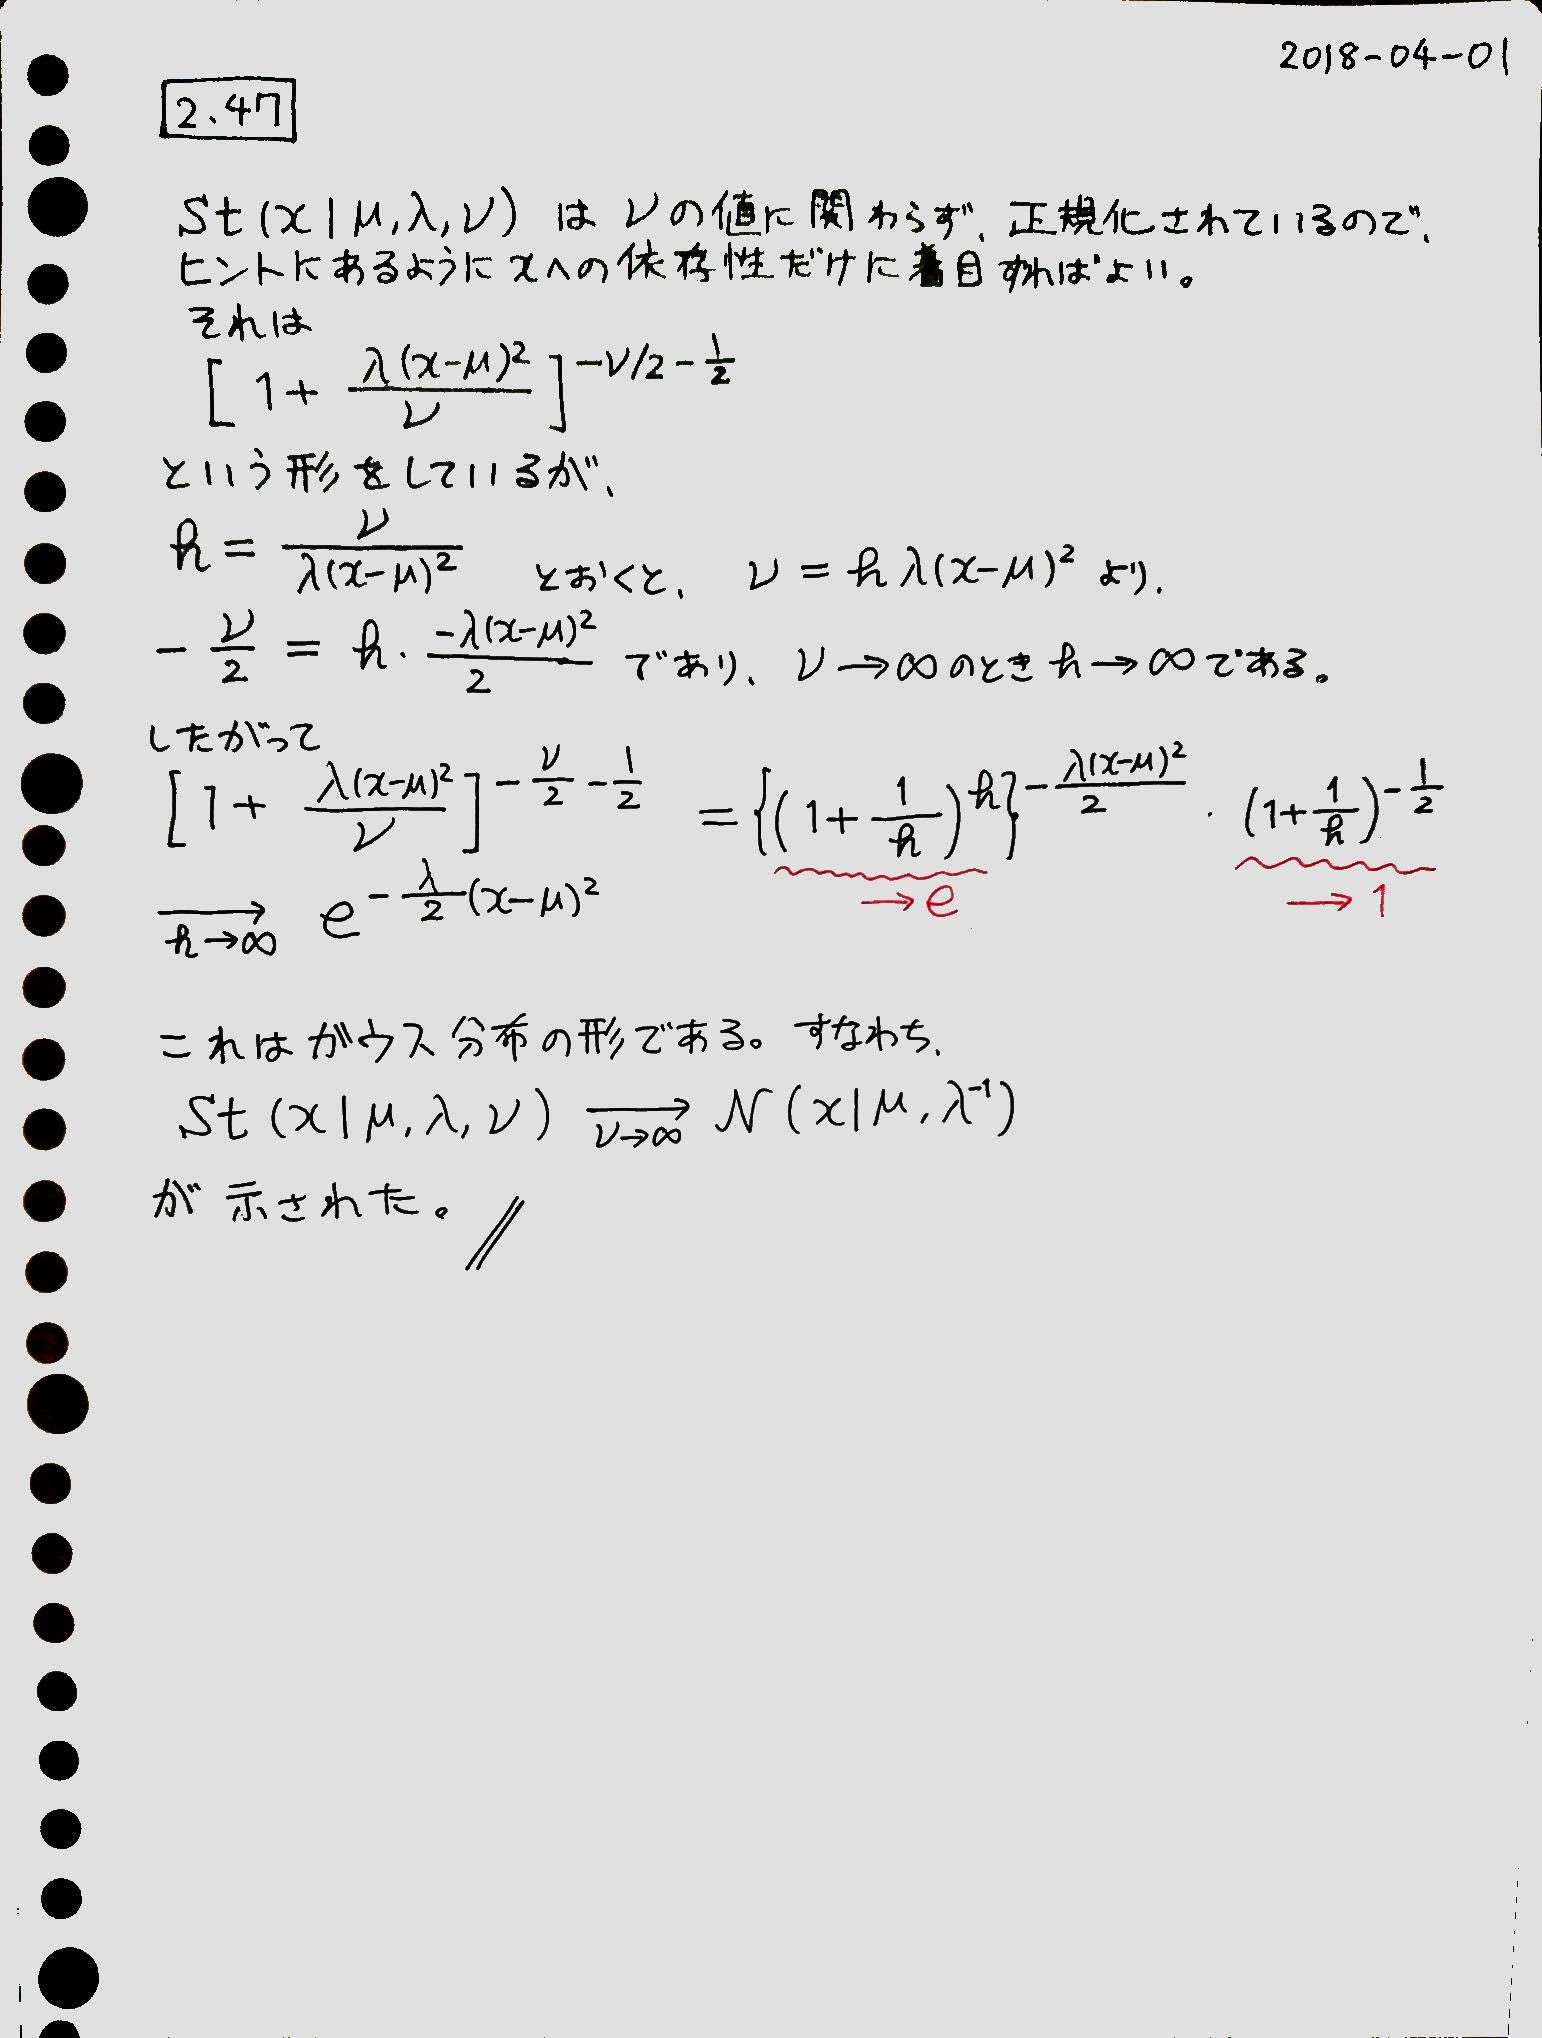 2018-04-01
2.47
St(x|μ,λ,ν) は νの値に関わらず、正規化されているので、
ヒントにあるようにxへの依存性だけに着目すればよい。
それは
[1 + λ(x-μ)²/ν]^{-ν/2 - 1/2}
という形をしているが、
h = ν/λ(x-μ)² とおくと、 ν = hλ(x-μ)² より、
-ν/2 = h・-λ(x-μ)²/2 であり、ν→∞のときh→∞である。
したがって
[1 + λ(x-μ)²/ν]^{-ν/2 - 1/2} = {(1 + 1/h)^h}^{-λ(x-μ)²/2} · (1 + 1/h)^{-1/2}
→e →1
→_{h→∞} e^{-λ/2(x-μ)²}
これはガウス分布の形である。すなわち、
St(x|μ,λ,ν) →_{ν→∞} N(x|μ,λ⁻¹)
が示された。//